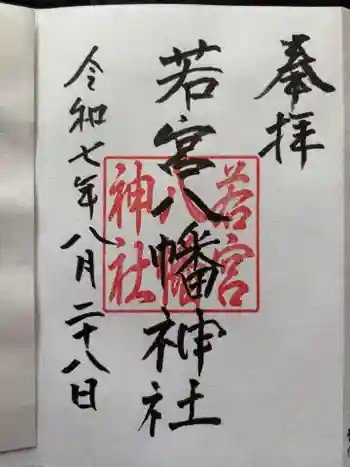 奉拝
若宮八幡神社
若宮
八幡
神社
令和七年八月二十八日